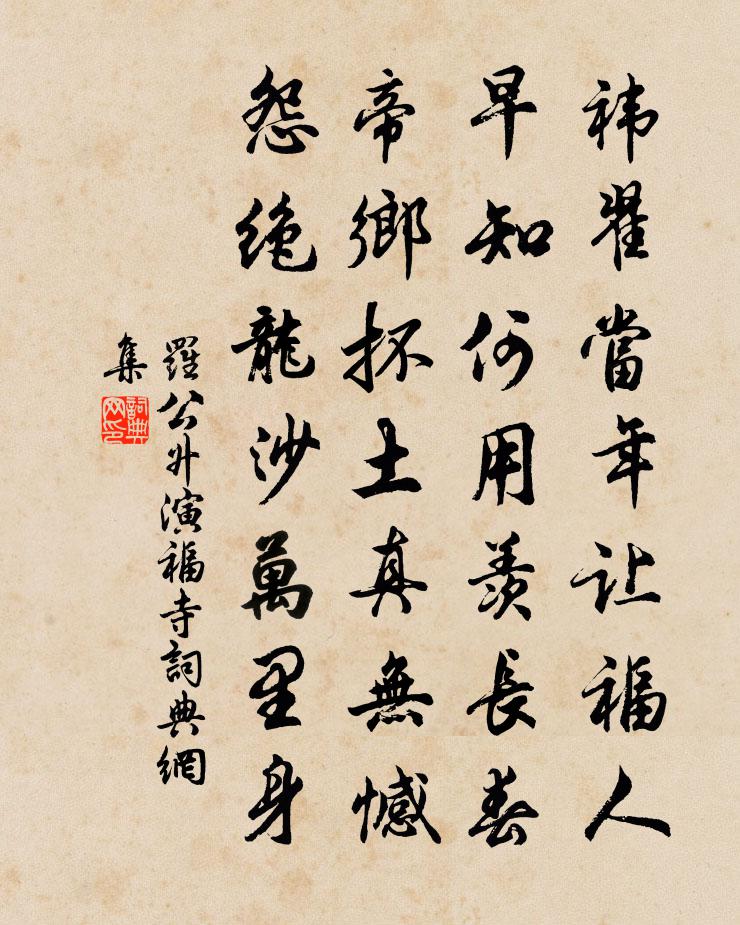 袆翟當年让福人
早知何用羨長春
帝鄉抔土真無憾
怨絶龍沙萬里身
羅公升演福寺詞典網
集
詞典网印